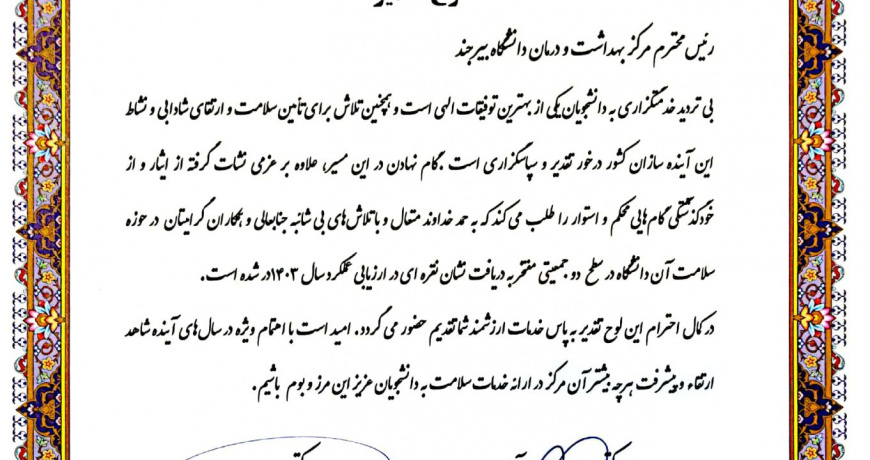 رئیس محترم مرکز بهداشت و درمان دانشگاه بیرجند
بی تردید خدمتگزاری به دانشجویان یکی از بهترین توفیقات الهی است و همچنین تلاش برای تأمین سلامت و ارتقای شادابی و نشاط
این آینده سازان کشور درخور تقدیر و سپاسگزاری است .گام نهادن در این مسیر، علاوه بر عزمی نشات گرفته از ایثار و از
خودگذشتگی گام‌هایی محکم و استوار را طلب می کند که به حمد خداوند متعال و با تلاش‌های بی شائبه جنابعالی و همکاران گرامیتان در حوزه
سلامت آن دانشگاه در سطح دو جمعیتی مفتخر به دریافت نشان نقره ای در ارزیابی عملکرد سال ۱۴۰۳در شده است.
در کمال احترام این لوح تقدیر به پاس خدمات ارزشمند شما تقدیم حضور می گردد. امید است با اهتمام ویژه در سال‌های آینده شاهد
ارتقاء و پیشرفت هرچه بیشتر آن مرکز در ارائه خدمات سلامت به دانشجویان عزیز این مرز و بوم باشیم.